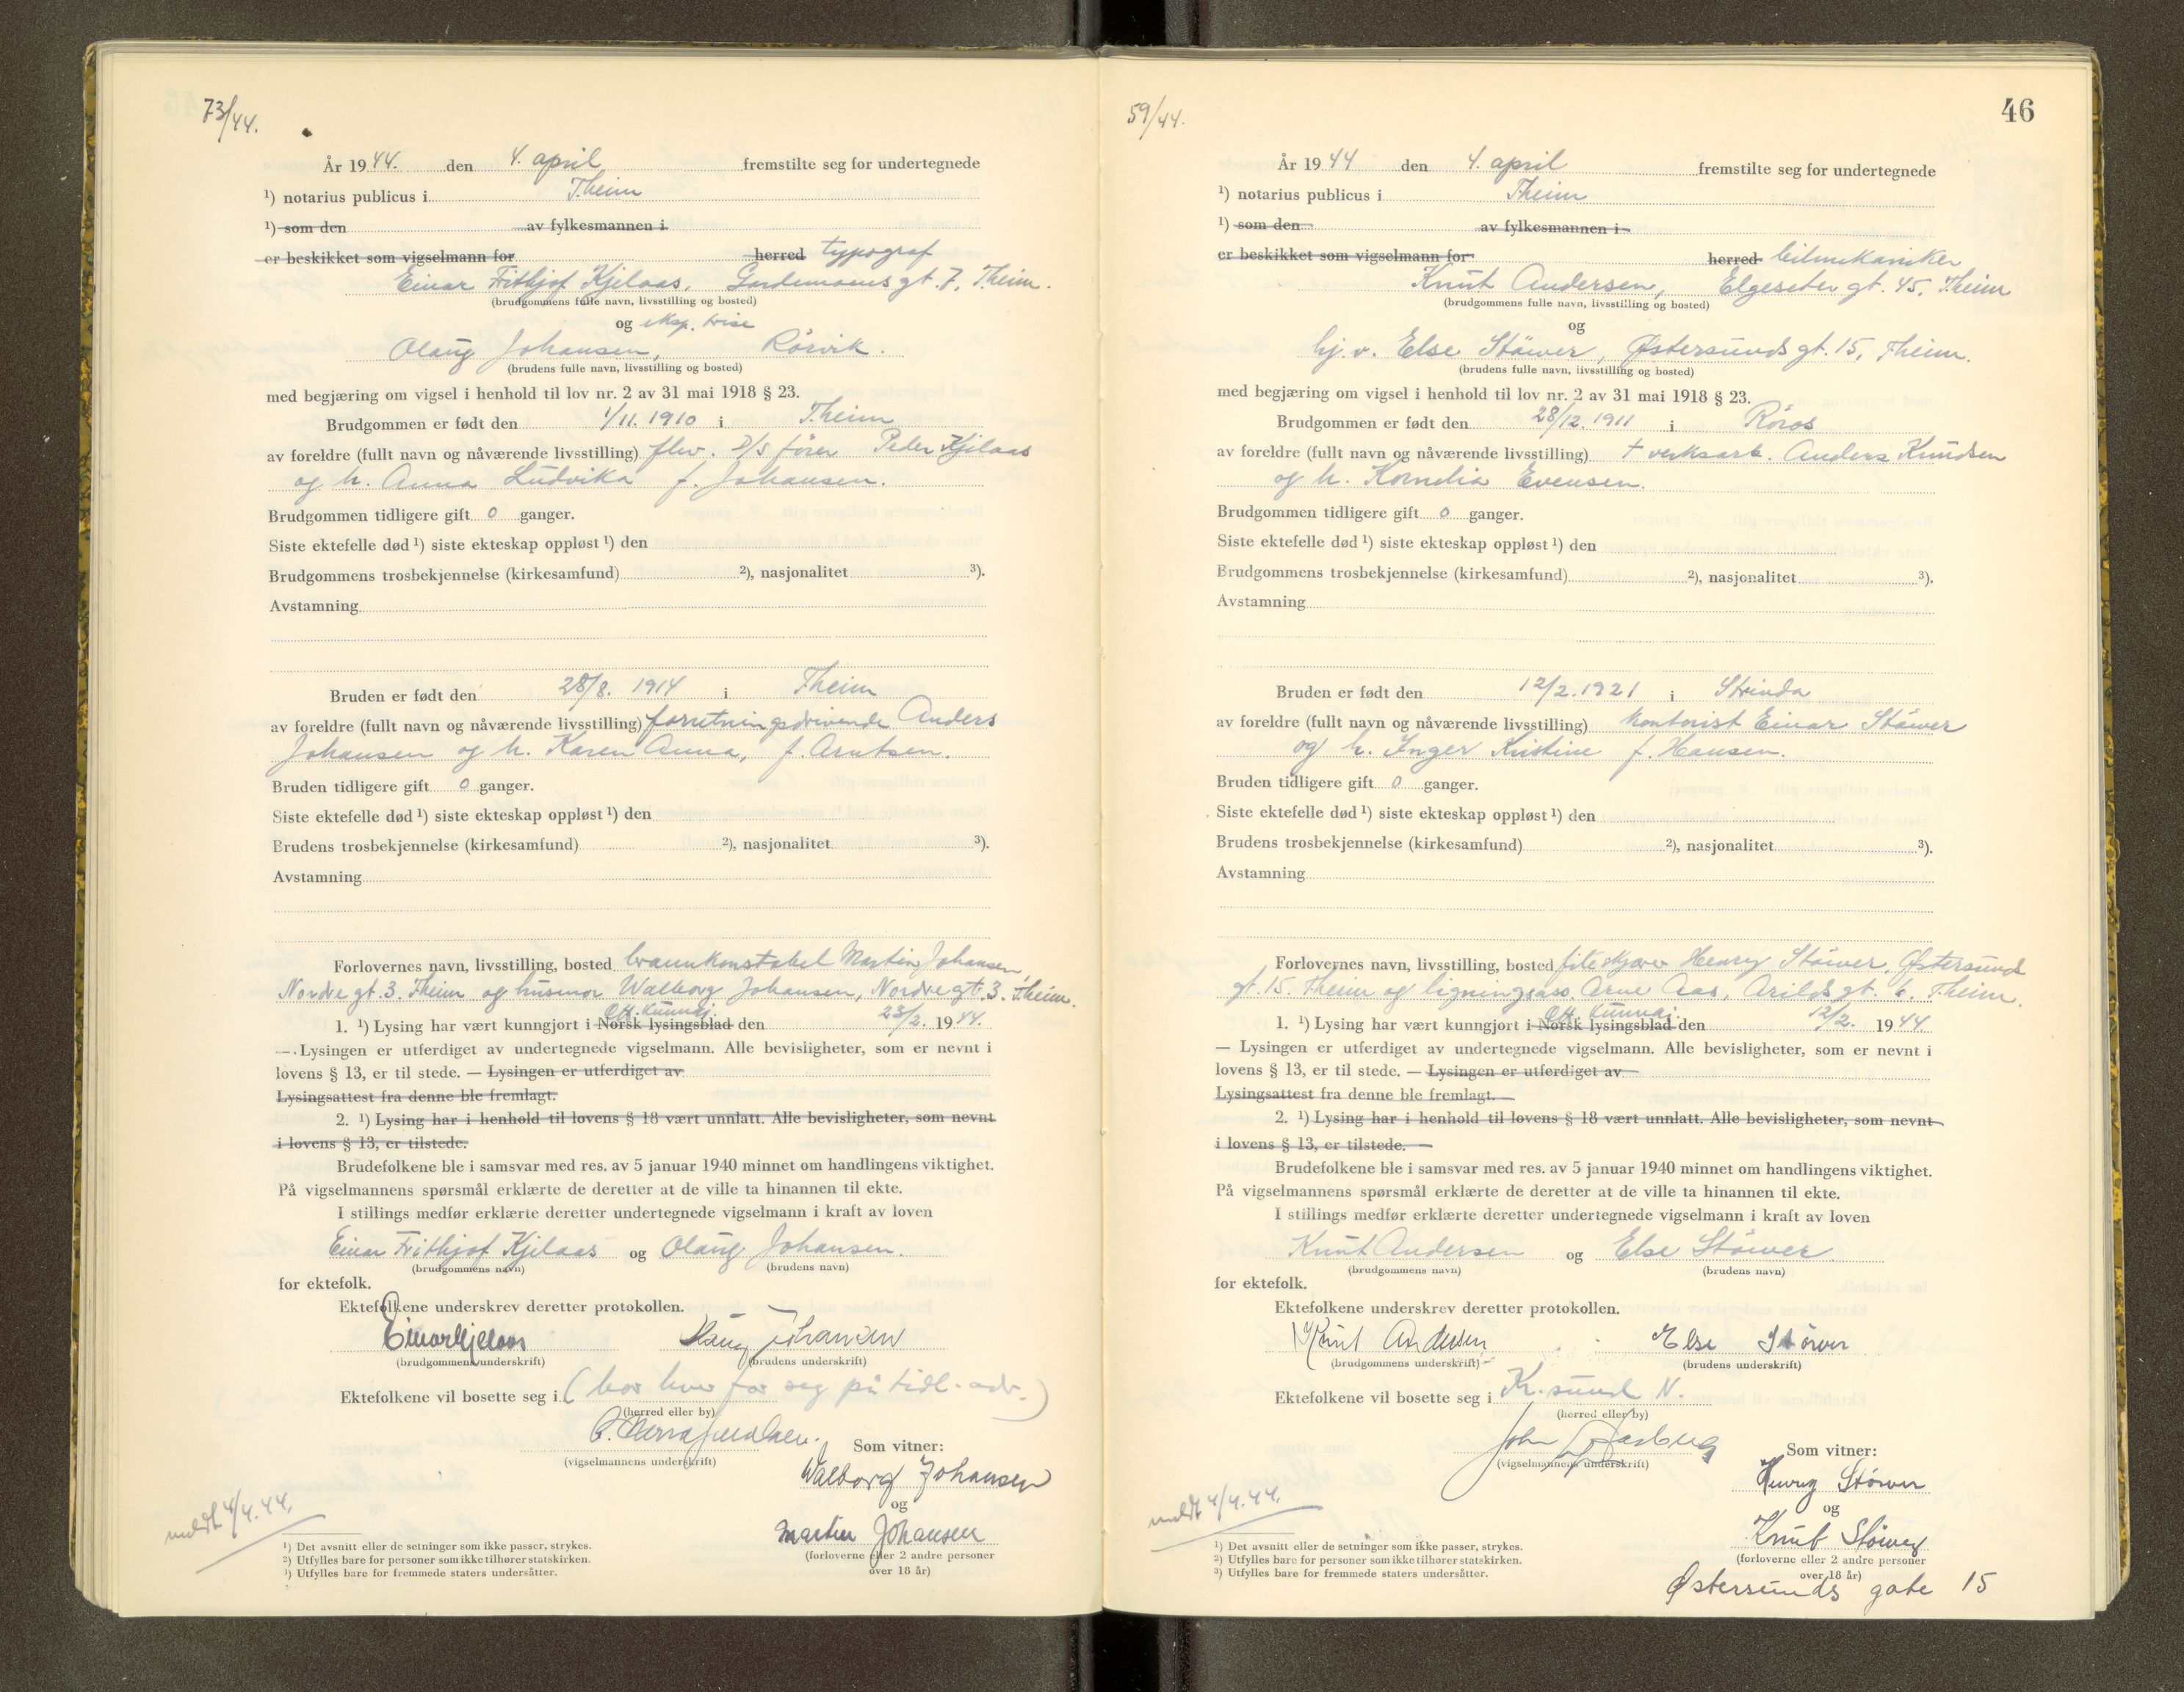 73/44.
År 1944. den 4. april fremstilte seg for undertegnede
¹) notarius publicus i Theim
¹) som den av fylkesmannen i
er beskikket som vigselmann for herred typograf
Einar Frithjof Kjelaas, gt. 7, Theim.
(brudgommens fulle navn, livsstilling og bosted)
og eksp. trise
Olaug Johansen, Rörvik.
(brudens fulle navn, livsstilling og bosted)
med begjæring om vigsel i henhold til lov nr. 2 av 31 mai 1918 § 23.
Brudgommen er født den 1/11. 1910 i Theim
av foreldre (fullt navn og nåværende livsstilling) flv. D/S fører Peder Kjelaas
og h. Anna Ludvika f. Johansen.
Brudgommen tidligere gift 0 ganger.
Siste ektefelle død ¹) siste ekteskap oppløst ¹) den
Brudgommens trosbekjennelse (kirkesamfund) ²), nasjonalitet ³).
Avstamning
Bruden er født den 28/8. 1914 i Theim
av foreldre (fullt navn og nåværende livsstilling) forretningsdrivende Anders
Johansen og h. Karen Anna, f. Arntsen.
Bruden tidligere gift 0 ganger.
Siste ektefelle død ¹) siste ekteskap oppløst ¹) den
Brudens trosbekjennelse (kirkesamfund) ²), nasjonalitet ³).
Avstamning
Forlovernes navn, livsstilling, bosted brannkonstabel Martin Johansen,
Nordre gt. 3. Theim og husmor Walborg Johansen, Nordre gt. 3. Theim.
Off. Kunngj.
1. ¹) Lysing har vært kunngjort i Norsk lysingsblad den 23/2. 1944.
— Lysingen er utferdiget av undertegnede vigselmann. Alle bevisligheter, som er nevnt i
lovens § 13, er til stede. — Lysingen er utferdiget av
Lysingsattest fra denne ble fremlagt.
2. ¹) Lysing har i henhold til lovens § 18 vært unnlatt. Alle bevisligheter, som nevnt
i lovens § 13, er tilstede.
Brudefolkene ble i samsvar med res. av 5 januar 1940 minnet om handlingens viktighet.
På vigselmannens spørsmål erklærte de deretter at de ville ta hinannen til ekte.
I stillings medfør erklærte deretter undertegnede vigselmann i kraft av loven
Einar Frithjof Kjelaas og Olaug Johansen.
(brudgommens navn) (brudens navn)
for ektefolk.
Ektefolkene underskrev deretter protokollen.
Einar Kjelaas Olaug Johansen
(brudgommens underskrift) (brudens underskrift)
Ektefolkene vil bosette seg i (bor hver for seg på tidl. adr.)
(herred eller by)
(vigselmannens underskrift) Som vitner:
Walborg Johansen
og
meldt 4/4.44.
Martin Johansen
(forloverne eller 2 andre personer
over 18 år)
¹) Det avsnitt eller de setninger som ikke passer, strykes.
²) Utfylles bare for personer som ikke tilhører statskirken.
³) Utfylles bare for fremmede staters undersåtter.
59/44.
46
År 1944 den 4. april fremstilte seg for undertegnede
¹) notarius publicus i Theim
¹) som den av fylkesmannen i
er beskikket som vigselmann for herred bilmekaniker
Knut Andersen, Elgeseter gt. 45. Theim
(brudgommens fulle navn, livsstilling og bosted)
og
hj. v. Else Stöwer, Østersunds gt. 15, Theim.
(brudens fulle navn, livsstilling og bosted)
med begjæring om vigsel i henhold til lov nr. 2 av 31 mai 1918 § 23.
Brudgommen er født den 28/12. 1911 i Röros
av foreldre (fullt navn og nåværende livsstilling) † verksarb. Anders Knudsen
og h. Kornelia Evensen.
Brudgommen tidligere gift 0 ganger.
Siste ektefelle død ¹) siste ekteskap oppløst ¹) den
Brudgommens trosbekjennelse (kirkesamfund) ²), nasjonalitet ³).
Avstamning
Bruden er født den 12/2. 1921 i Strinda
av foreldre (fullt navn og nåværende livsstilling) kontorist Einar Stöwer
og h. Inger Kristine f. Hansen.
Bruden tidligere gift 0 ganger.
Siste ektefelle død ¹) siste ekteskap oppløst ¹) den
Brudens trosbekjennelse (kirkesamfund) ²), nasjonalitet ³).
Avstamning
Forlovernes navn, livsstilling, bosted Henry Stöwer, Østersund
gt. 15. Theim og ligningsass. Arne Aas, Arilds gt. 6. Theim.
Off. Kunngj.
1. ¹) Lysing har vært kunngjort i Norsk lysingsblad den 12/2. 1944.
— Lysingen er utferdiget av undertegnede vigselmann. Alle bevisligheter, som er nevnt i
lovens § 13, er til stede. — Lysingen er utferdiget av
Lysingsattest fra denne ble fremlagt.
2. ¹) Lysing har i henhold til lovens § 18 vært unnlatt. Alle bevisligheter, som nevnt
i lovens § 13, er tilstede.
Brudefolkene ble i samsvar med res. av 5 januar 1940 minnet om handlingens viktighet.
På vigselmannens spørsmål erklærte de deretter at de ville ta hinannen til ekte.
I stillings medfør erklærte deretter undertegnede vigselmann i kraft av loven
Knut Andersen og Else Stöwer
(brudgommens navn) (brudens navn)
for ektefolk.
Ektefolkene underskrev deretter protokollen.
Knut Andersen Else Stöwer
(brudgommens underskrift) (brudens underskrift)
Ektefolkene vil bosette seg i Kr.sund N.
(herred eller by)
John
(vigselmannens underskrift) Som vitner:
Henry Stöwer
og
meldt 4/4.44.
Knut Stöwer
(forloverne eller 2 andre personer
over 18 år)
Østersunds gate 15
¹) Det avsnitt eller de setninger som ikke passer, strykes.
²) Utfylles bare for personer som ikke tilhører statskirken.
³) Utfylles bare for fremmede staters undersåtter.